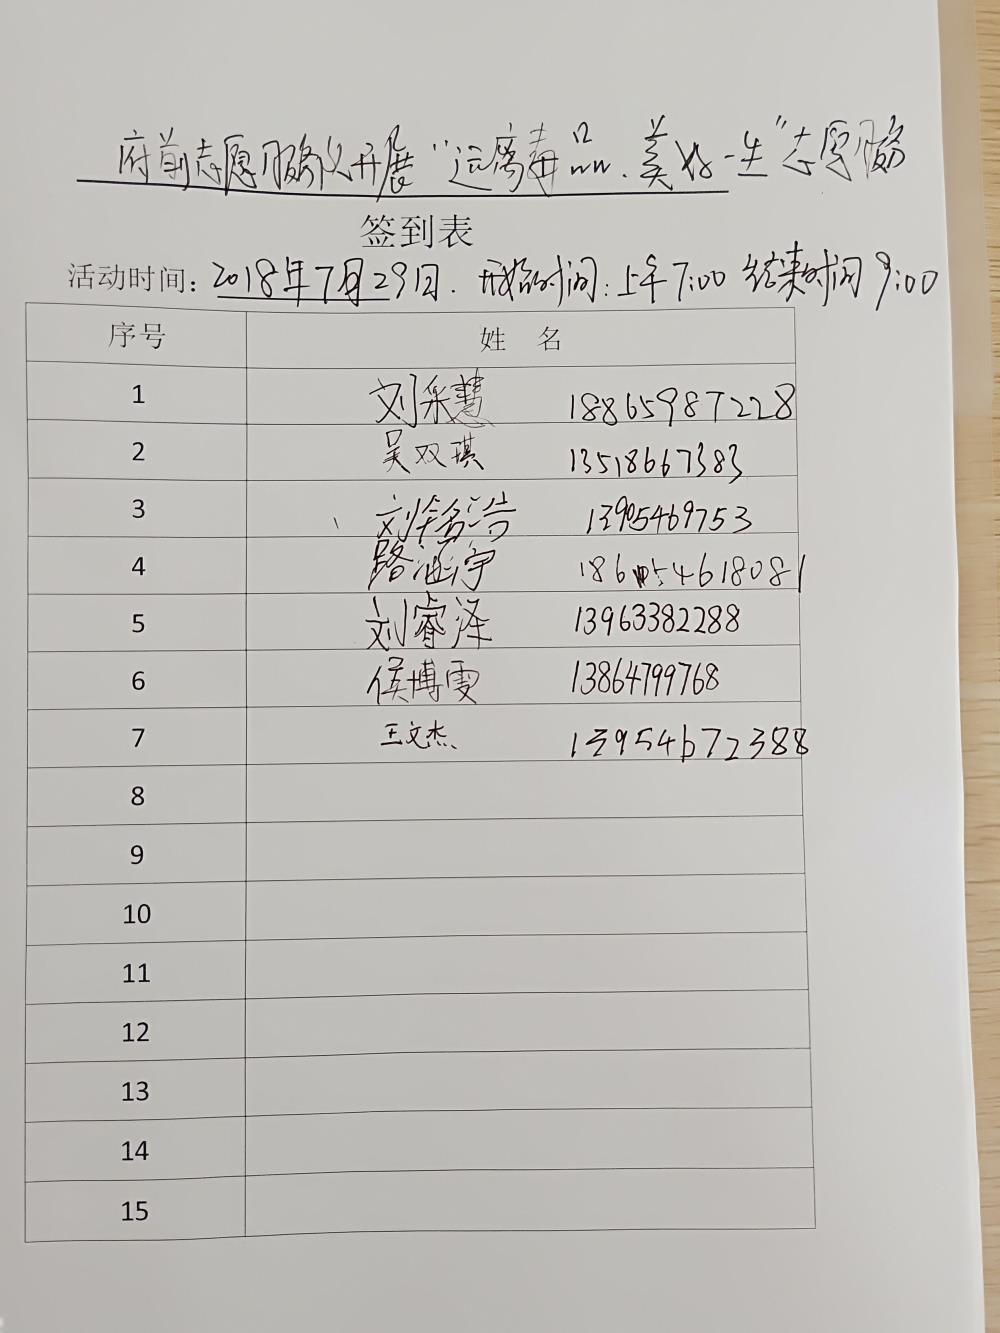 府前志愿服务队开展“远离毒品.美好一生”志愿服务
签到表
活动时间：2018年7月29日. 开始时间：上午7:00 结束时间9:00
序号 姓 名
1 刘采慧 18865987228
2 吴双琪 13518667383
3 刘铭浩 13905469753
4 路涵宇 186054618081
5 刘睿泽 13963382288
6 侯博雯 13864799768
7 王文杰 13954672388
8
9
10
11
12
13
14
15